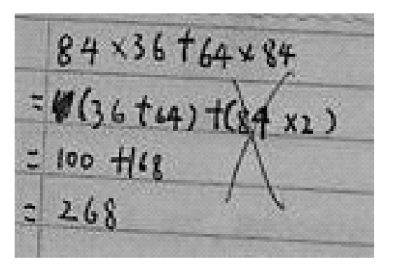 84 × 36 + 64 × 84
= (36 + 64) + (84 × 2)
= 100 + 168
= 268